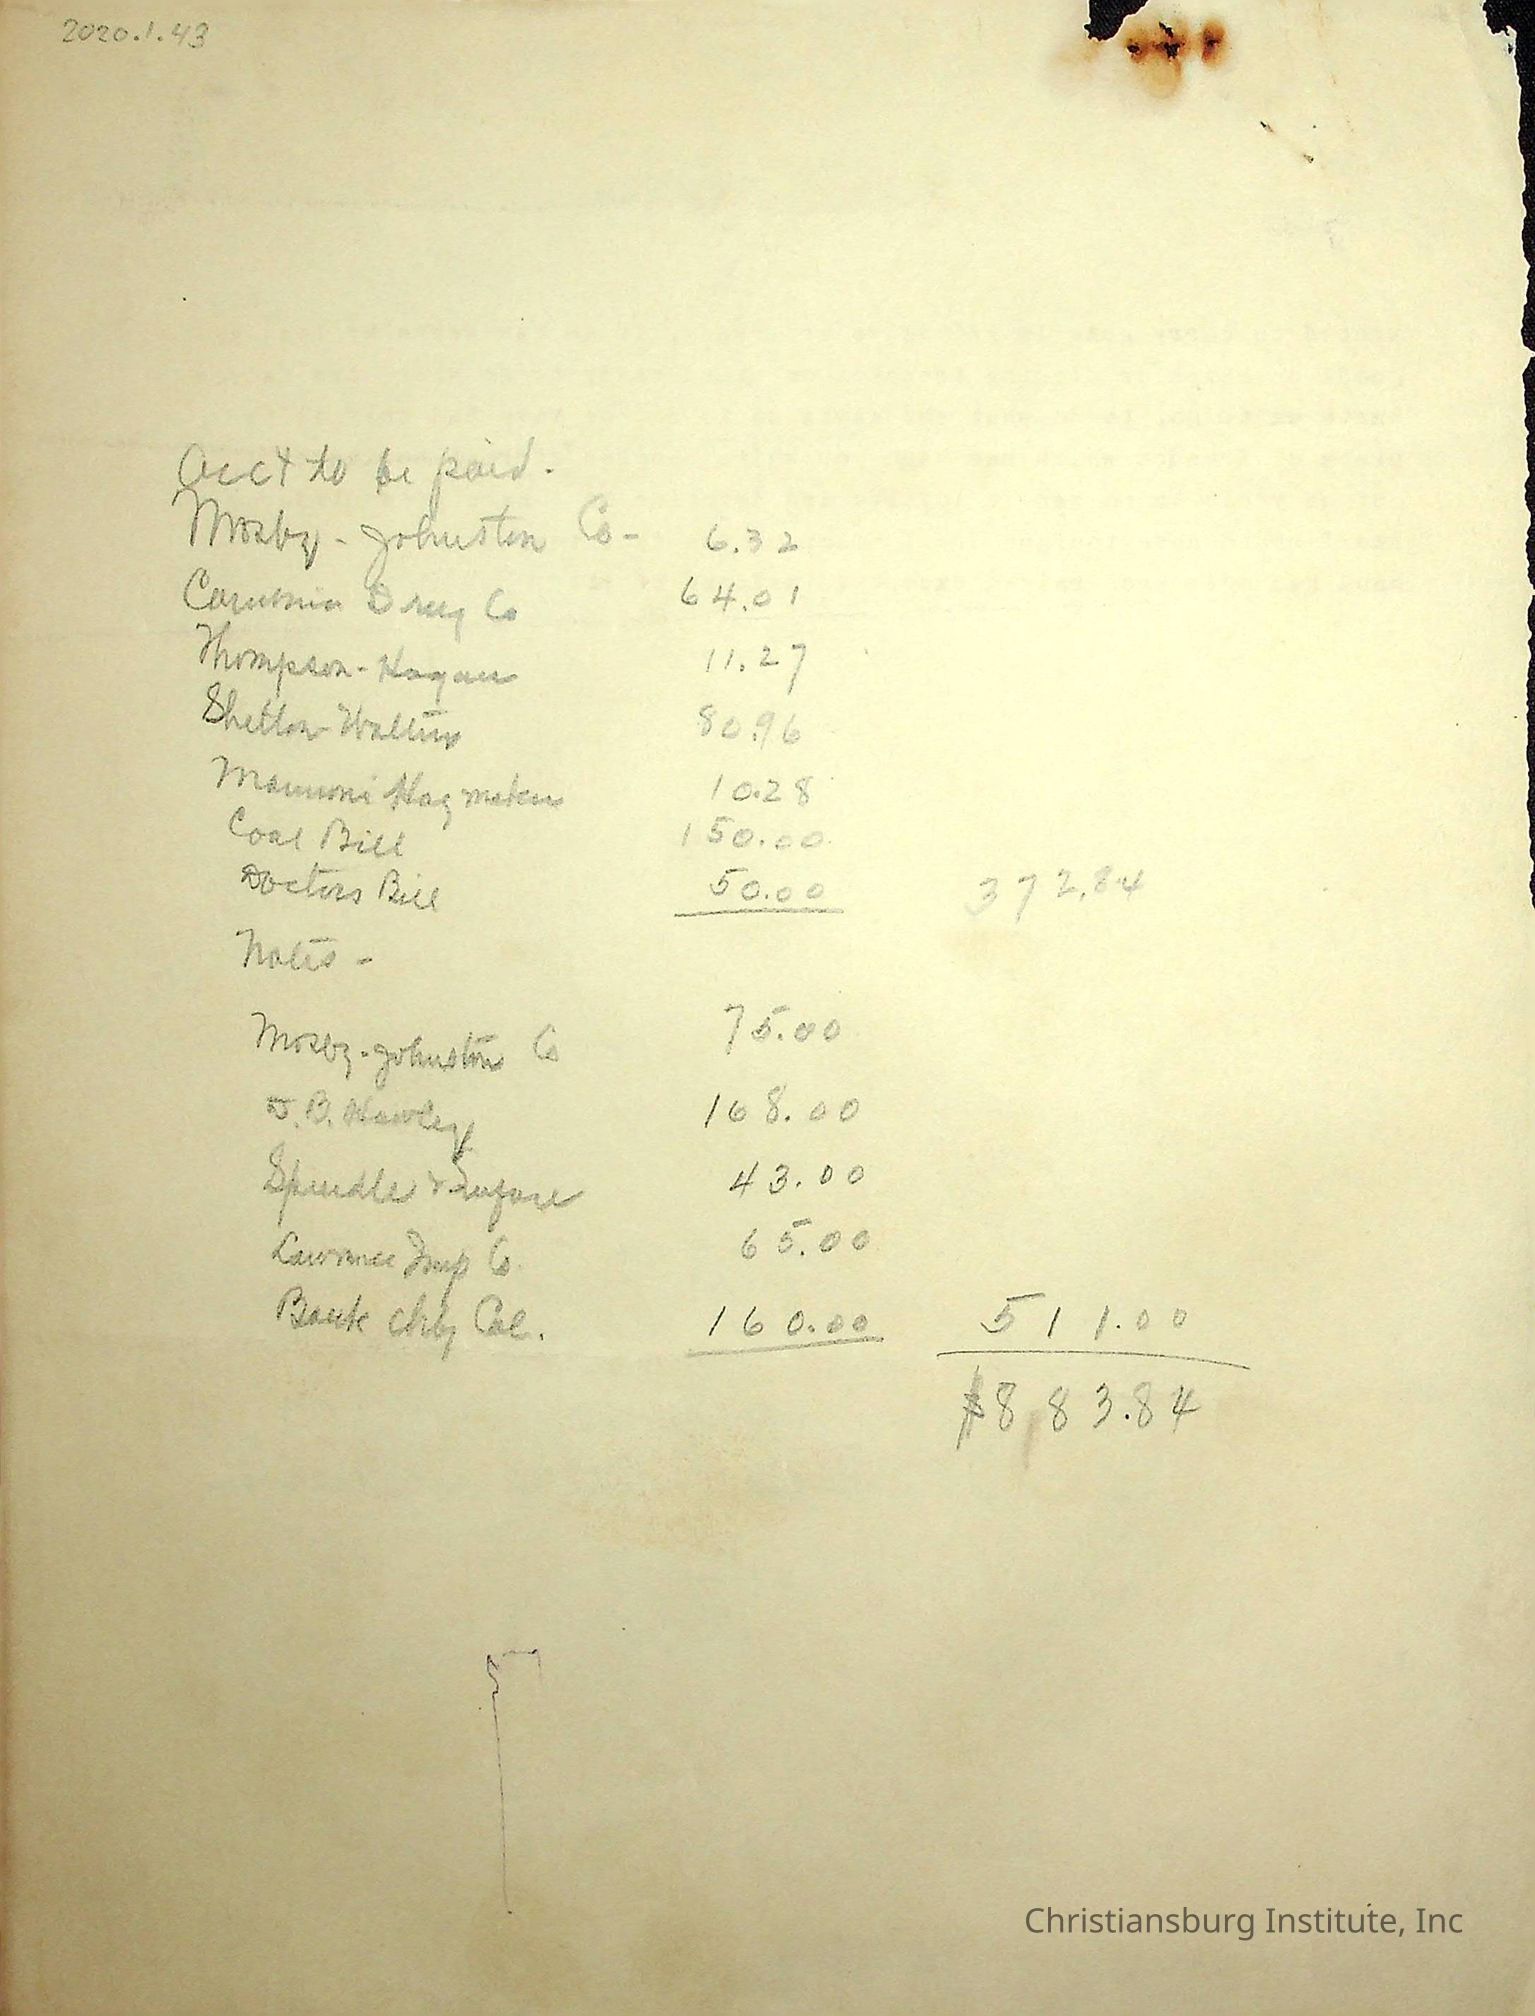 2020.1.43
Acct to be paid.
Mosby-Johnston Co- 6.32
Drug Co 64.01
Thompson-Hagan 11.27
Shelton Walters 80.96
10.28
Coal Bill 150.00
Doctors Bill 50.00 372.84
Notes -
Mosby-Johnston Co 75.00
Hawley 168.00
Spindle & 43.00
Lawrence Imp Co 65.00
Bank Chbg Col. 160.00 511.00
$883.84
Christiansburg Institute, Inc